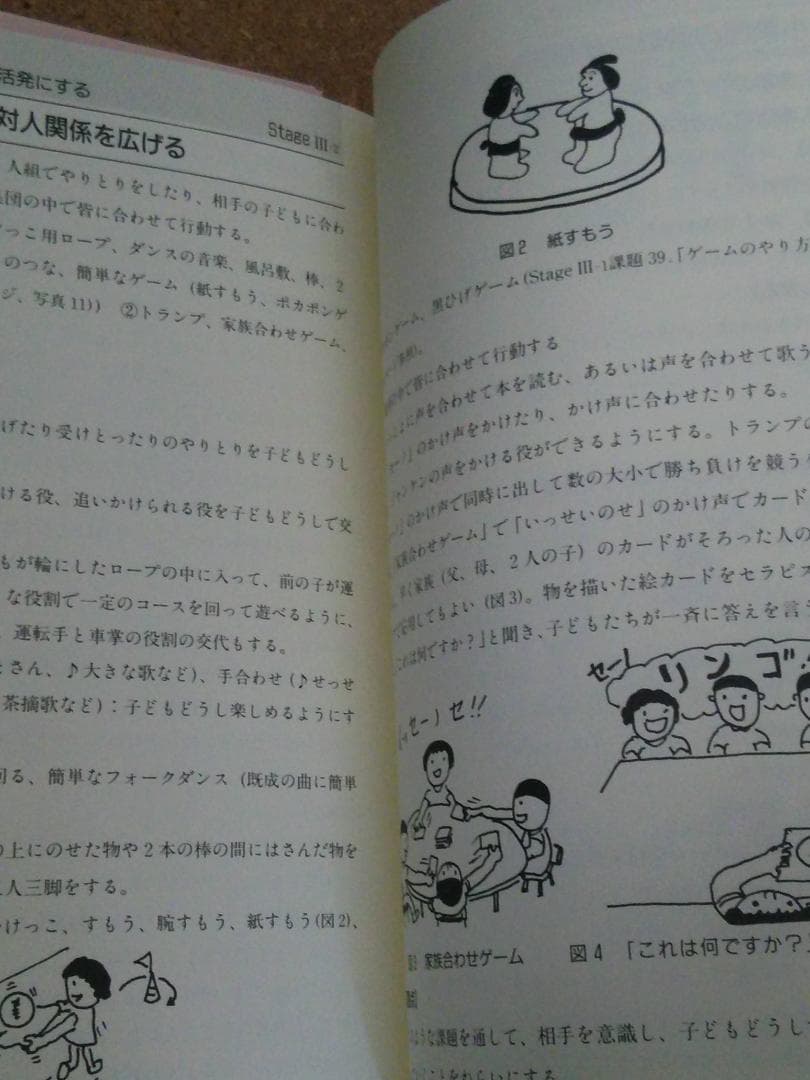 活発にする
対人関係を広げる
Stage III
人組でやりとりをしたり、相手の子どもに合わ
集団の中で皆に合わせて行動する。
っこ用ロープ、ダンスの音楽、風呂敷、棒、2
のつな、簡単なゲーム（紙すもう、ポカポンゲ
ジ、写真11)） ②トランプ、家族合わせゲーム、
げたり受けとったりのやりとりを子どもどうし
ける役、追いかけられる役を子どもどうしで交
もが輪にしたロープの中に入って、前の子が運
な役割で一定のコースを回って遊べるように、
、運転手と車掌の役割の交代もする。
さん、♪大きな歌など)、手合わせ（♪せっせ
茶摘歌など）：子どもどうし楽しめるようにす
回る、簡単なフォークダンス（既成の曲に簡単
の上にのせた物や2本の棒の間にはさんだ物を
人三脚をする。
けっこ、すもう、腕すもう、紙すもう(図2)、
図2 紙すもう
ゲーム、黒ひげゲーム(Stage III-1課題39.「ゲームのやり方
中で皆に合わせて行動する
に声を合わせて本を読む、あるいは声を合わせて歌う
」のかけ声をかけたり、かけ声に合わせたりする。
ジャンケンの声をかける役ができるようにする。トランプの
」のかけ声で同時に出して数の大小で勝ち負けを競う
家族合わせゲーム」で「いっせいのせ」のかけ声でカード
早く家族（父、母、2人の子）のカードがそろった人の
応用してもよい（図3)。物を描いた絵カードをセラピス
これは何ですか？」と聞き、子どもたちが一斉に答えを言う
セーノ
リンゴ
ッセー）セ!!
家族合わせゲーム
図4 「これは何ですか？」
ような課題を通して、相手を意識し、子どもどうしで
ことをねらいにする